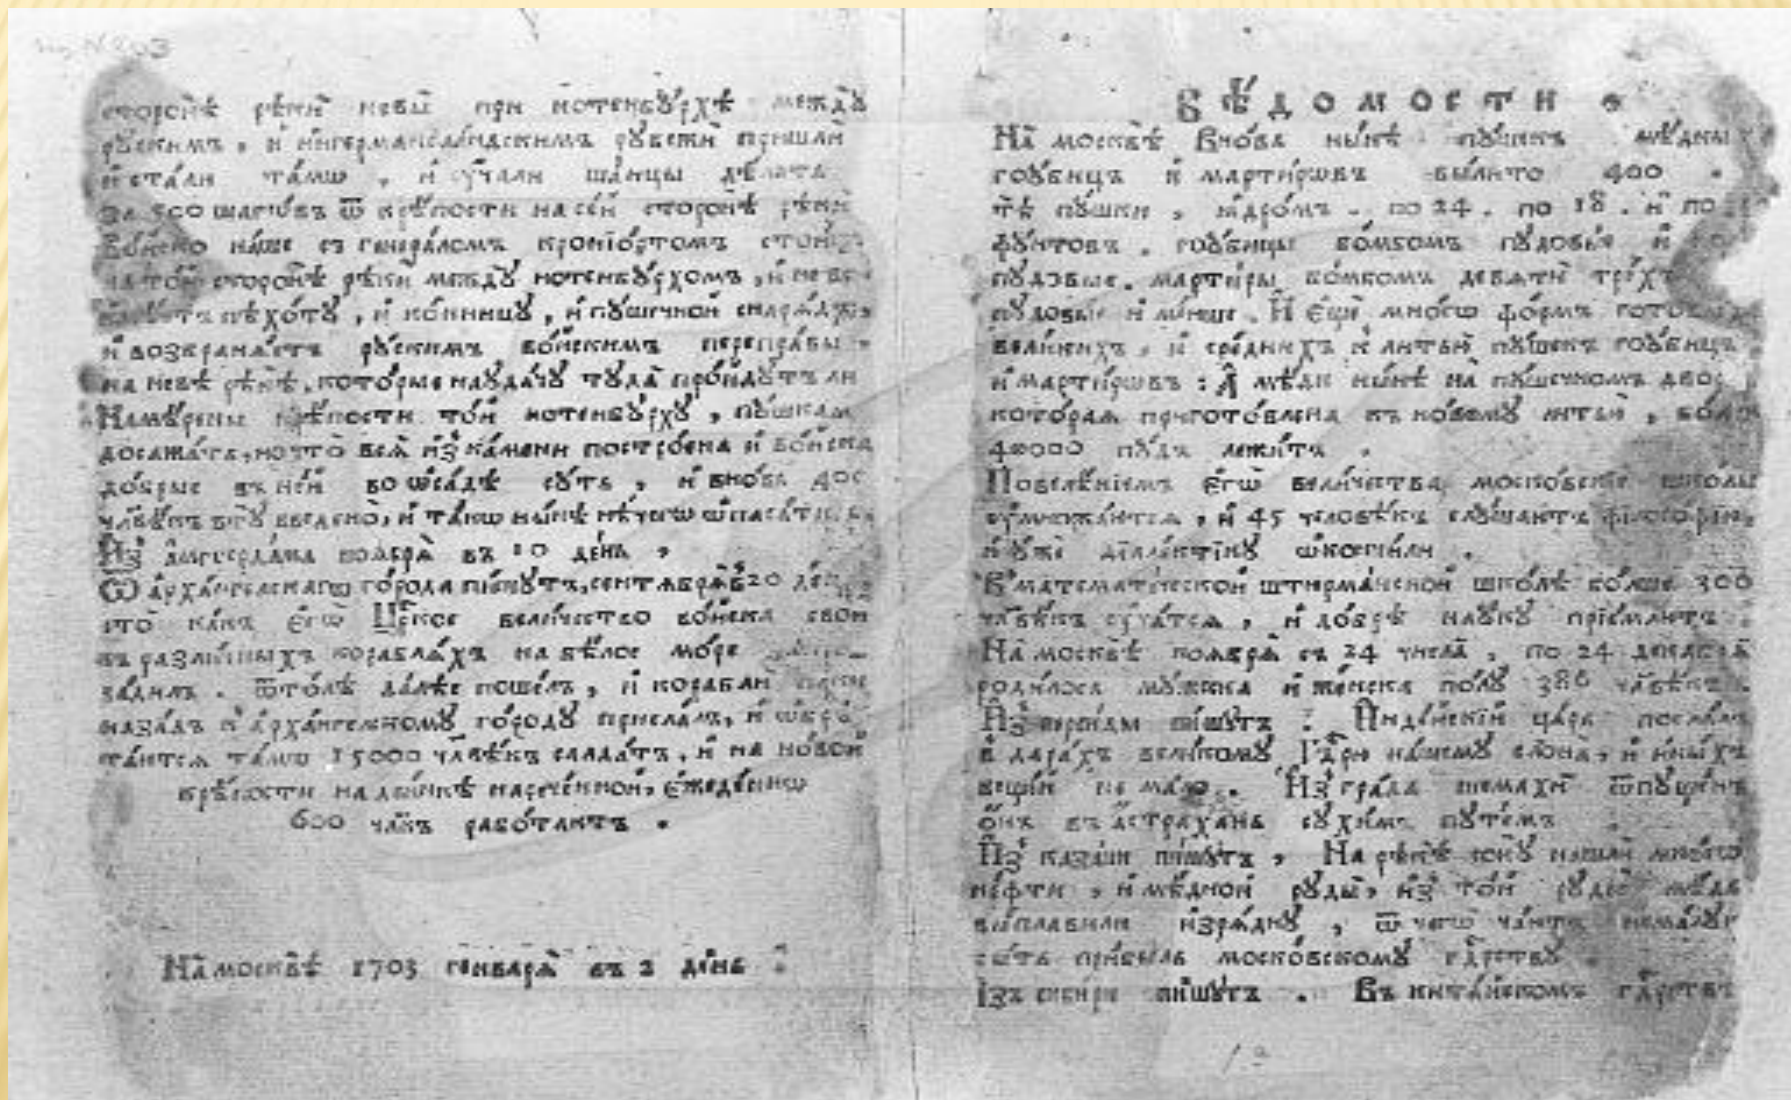 сторонѣ рѣки невы при нотенбꙋрхѣ междꙋ
рꙋскимъ, и ингерманландскимъ рꙋбежи пришли
и стали тамѡ, и ꙋчали шанцы дѣлать
за 500 шагѡвъ ѿ крѣпости на сей сторонѣ рѣки
войско наше съ генераломъ кронїортомъ стоитъ
на той сторонѣ рѣки междꙋ нотенбꙋрхомъ, и
пѣхотꙋ, и конницꙋ, и пꙋшечной
и возбранѧетъ рꙋскимъ войскимъ переправы
на невѣ рѣкѣ, которые наꙋдачꙋ тꙋда пройдꙋтъ ли
Намѣрены крѣпости той нотенбꙋрхꙋ, пꙋшкам
досажать, но что всѧ из камени построена и войска
добрые въ ней во ѡсадѣ сꙋть, и вновь 400
члвѣкъ введено, и такѡ нынѣ нѣчегѡ ѡпасатисѧ
Из амстердама ноѧбрѧ въ 10 день,
Ѿ архангелскагѡ города пишꙋтъ, сентѧбрѧ въ 20 день
что какъ егѡ Црское величество войска свои
въ различныхъ кораблѧхъ на бѣлое море
ѿтолѣ далѣе пошелъ, и корабли паки
назадъ к архангелномꙋ городꙋ прислалъ, и ѡбрѣ
таютсѧ тамѡ 15000 члвѣкъ салдатъ, и на новой
крѣпости на двинкѣ нареченной, ежеденнѡ
600 члвкъ работаютъ.
На москвѣ 1703 генварѧ въ 2 день
ВѢДОМОСТИ.
На москвѣ вновь нынѣ пꙋшекъ мѣдныхъ
гоꙋбицъ и мартирѡвъ вылито 400.
тѣ пꙋшки, ѧдромъ. по 24. по 18. и по
фꙋнтовъ. гоꙋбицы бомбомъ пꙋдовые и
пꙋдовые. мартиры бомбомъ девѧти трехъ
пꙋдовые и менше. И еще многѡ формъ готовыхъ
великихъ, и среднихъ к литью пꙋшекъ гоꙋбицъ
и мартирѡвъ: А мѣди нынѣ на пꙋшечномъ дворѣ
котораѧ приготовлена къ новомꙋ литью, болше
40000 пꙋдъ лежитъ.
Повелѣнїемъ егѡ величества московские школы
ꙋмножаютсѧ, и 45 человѣкъ слꙋшаютъ философїю,
и ꙋже дїалектїкꙋ ѡкончили.
В математической штюрманской школѣ болше 300
члвѣкъ ꙋчатсѧ, и добрѣ наꙋкꙋ прїемлютъ.
На москвѣ ноѧбрѧ съ 24 числа, по 24 декабрѧ
родилось мꙋжска и женска полꙋ 386 члвѣкъ.
Из персиды пишꙋтъ: Индѣйский царь послалъ
в дарахъ великомꙋ Гдрю нашемꙋ слона, и иныхъ
вещей не мало. Из града шемахи ѿпꙋщенъ
онъ въ астрахань сꙋхимъ пꙋтемъ
Из казани пишꙋтъ, На рѣкѣ сокꙋ нашли многѡ
нефти, и мѣдной рꙋды, из той рꙋды мѣдь
выплавили изрѧднꙋ, ѿ чегѡ чаютъ немалꙋю
быть прибыль московскомꙋ гдрствꙋ
Изъ сибири пишꙋтъ. Въ китайскомъ гдрствѣ